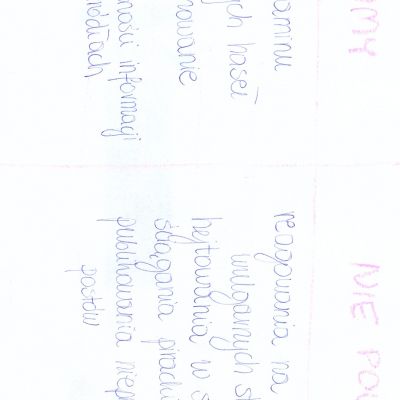 MY
aminu
ych haseł
nowanie
ności informacji
ródłach
NIE PO
reagowania na
wulgarnych sł
hejtowania w s
ściągania pirack
publikowania niepr
postów